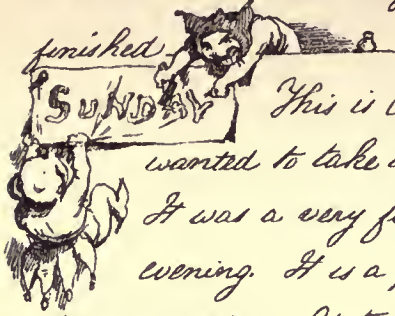 finished
SUNDAY
This is
wanted to take
It was a very
evening. It is a